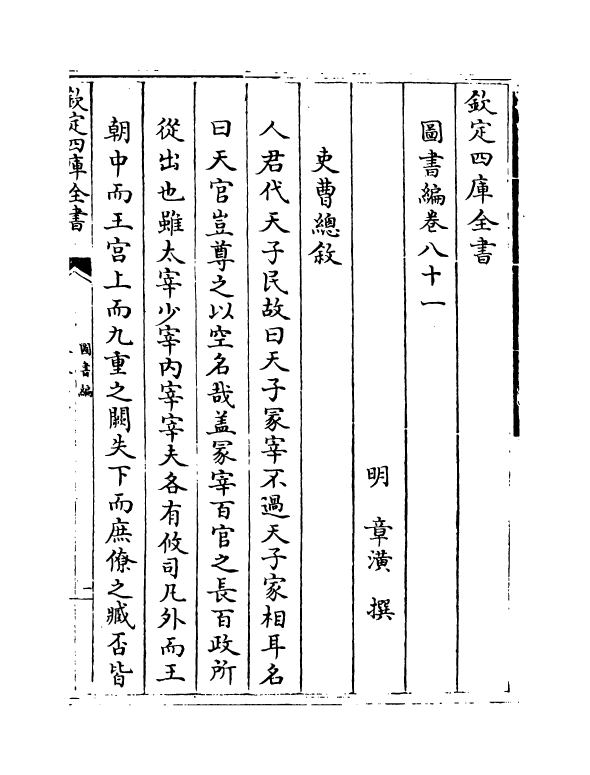 欽定四庫全書
圖書編卷八十一
明 章潢 撰
吏曹總敘
人君代天子民故曰天子冢宰不過天子家相耳名
曰天官豈尊之以空名哉蓋冢宰百官之長百政所
從出也雖太宰少宰内宰宰夫各有攸司凡外而王
朝中而王宫上而九重之闕失下而庶僚之臧否皆
欽定四庫全書
圖書編